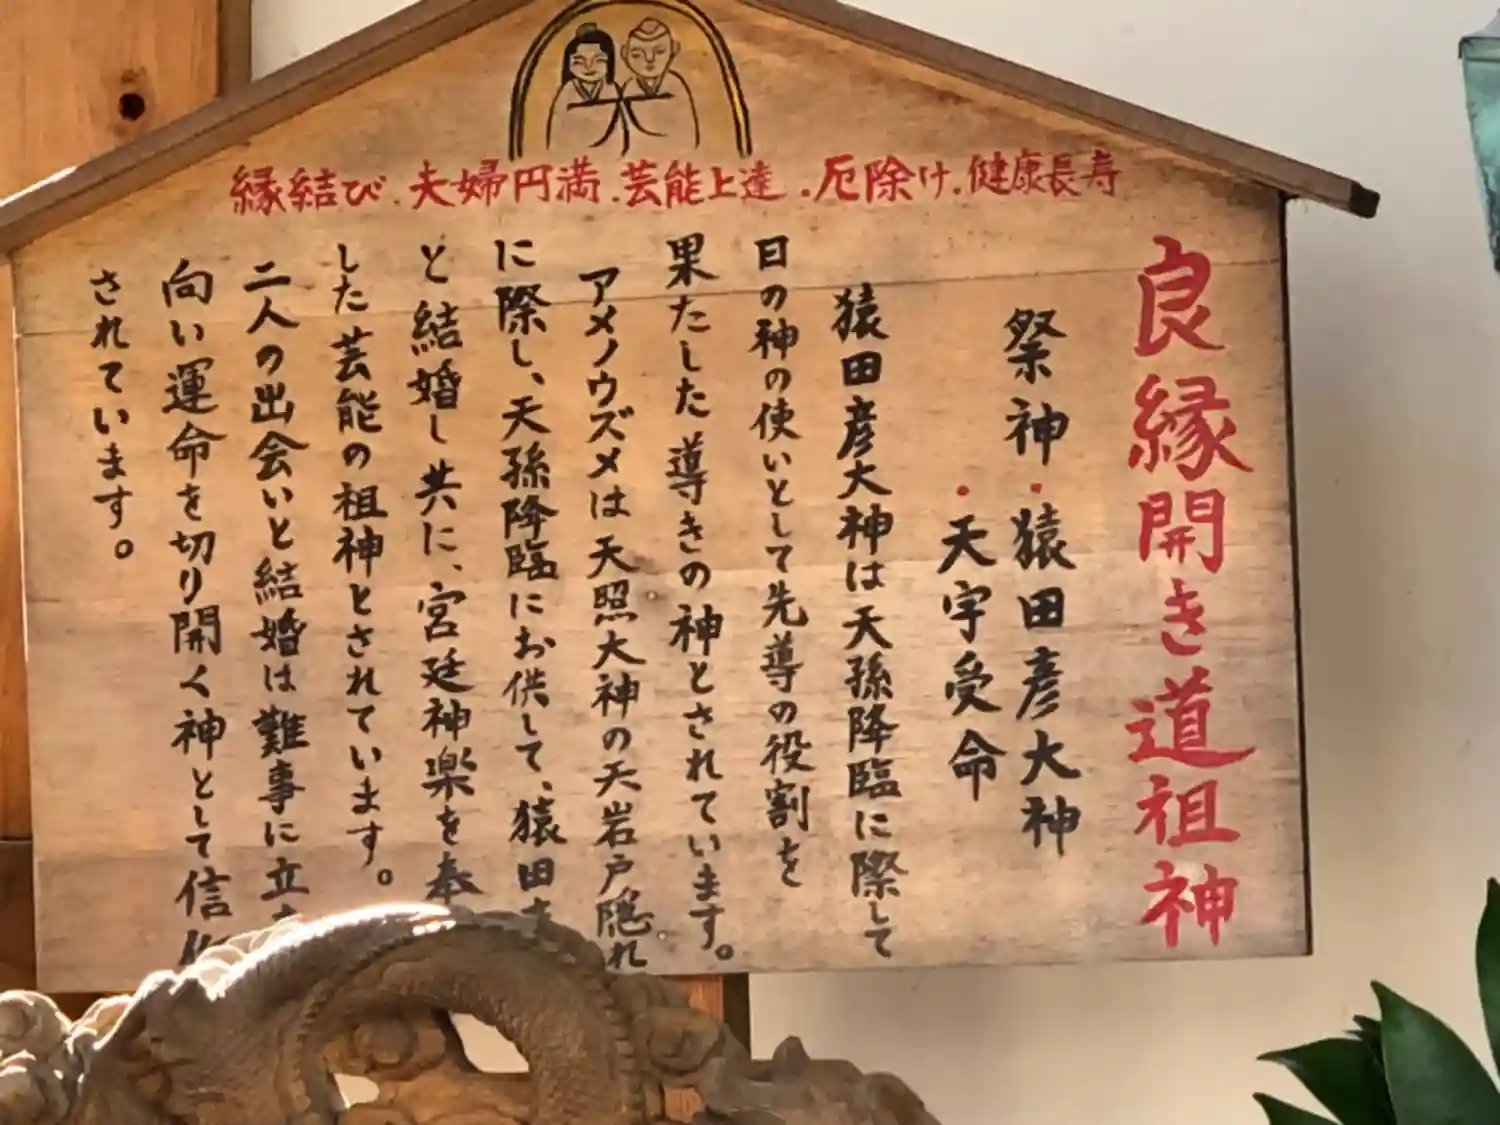 縁結び.夫婦円満.芸能上達.厄除け.健康長寿
良縁開き道祖神
祭神・猿田彦大神
・天宇受命
猿田彦大神は天孫降臨に際して
日の神の使いとして先導の役割を
果たした導きの神とされています。
アメノウズメは天照大神の天岩戸隠れ
に際し、天孫降臨にお供して、猿田
と結婚し共に、宮廷神楽を奉
した芸能の祖神とされています。
二人の出会いと結婚は難事に立
向い運命を切り開く神として信
されています。